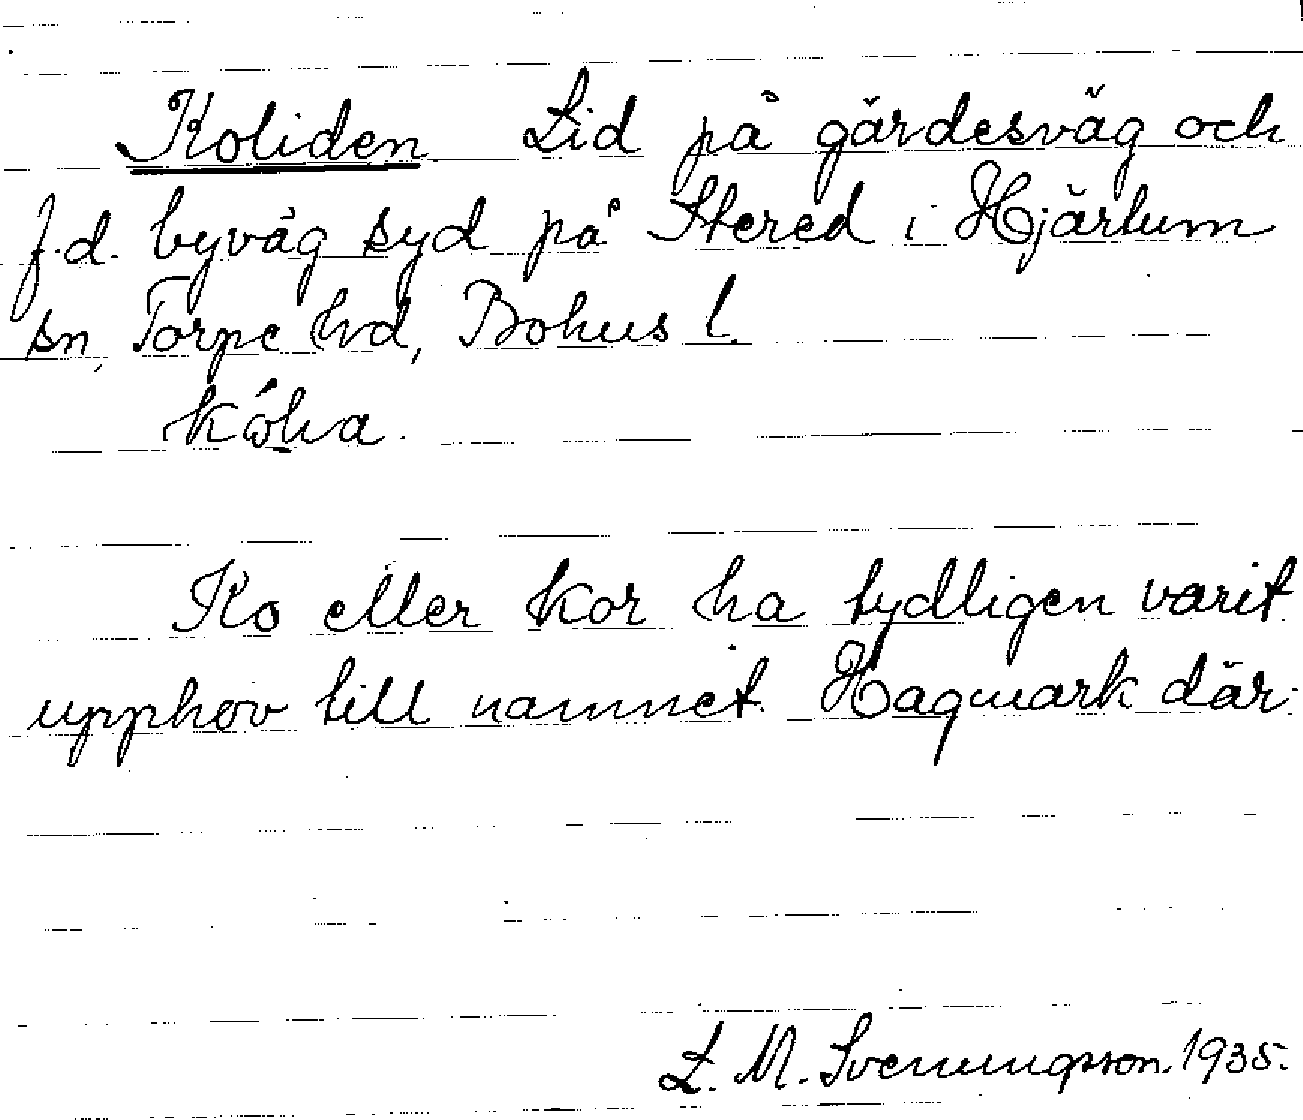 Koliden Lid på gärdesväg och
f.d. byväg syd på Stered i Hjärtum
sn, Torpe hd, Bohus l.
Ko eller kor ha tydligen varit
upphov till namnet. Hagmark där.
L. M. Svenungsson. 1935.